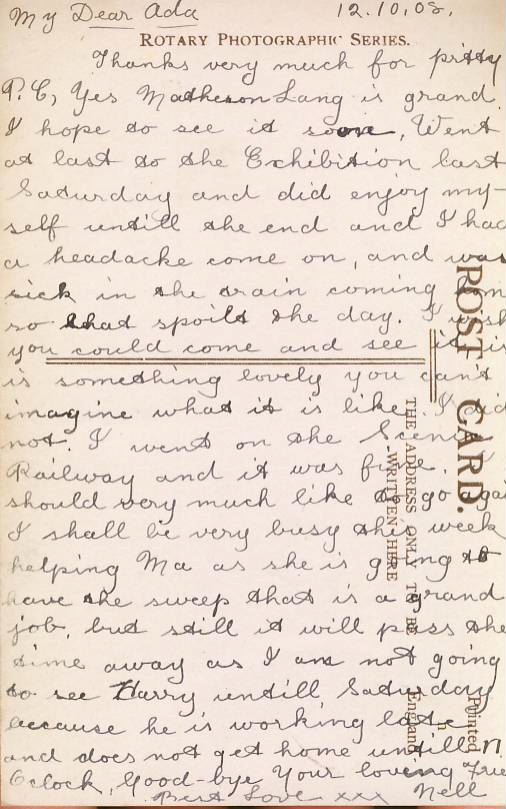 My Dear Ada 12.10.08.
ROTARY PHOTOGRAPHIC SERIES.
Thanks very much for pritty
P.C, Yes Matheson Lang is grand.
I hope to see it soon, Went
at last to the Exhibition last
Saturday and did enjoy my-
self untill the end and I had
a headacke come on, and was
sick in the train coming home
so that spoilt the day. I wish
you could come and see it it is
is something lovely you can't
imagine what it is like. I did
not. I went on the Scenic
Railway and it was fine. I
should very much like to go again
I shall be very busy this week
helping Ma as she is going to
have the sweep that is a grand
job, but still it will pass the
time away as I am not going
to see Harry untill Saturday
because he is working late
and does not get home untill 11.
O'clock, Good-bye Your loving Friend
Best Love xxx Nell
POST CARD.
THE ADDRESS ONLY TO BE
WRITTEN HERE
Printed
in
England